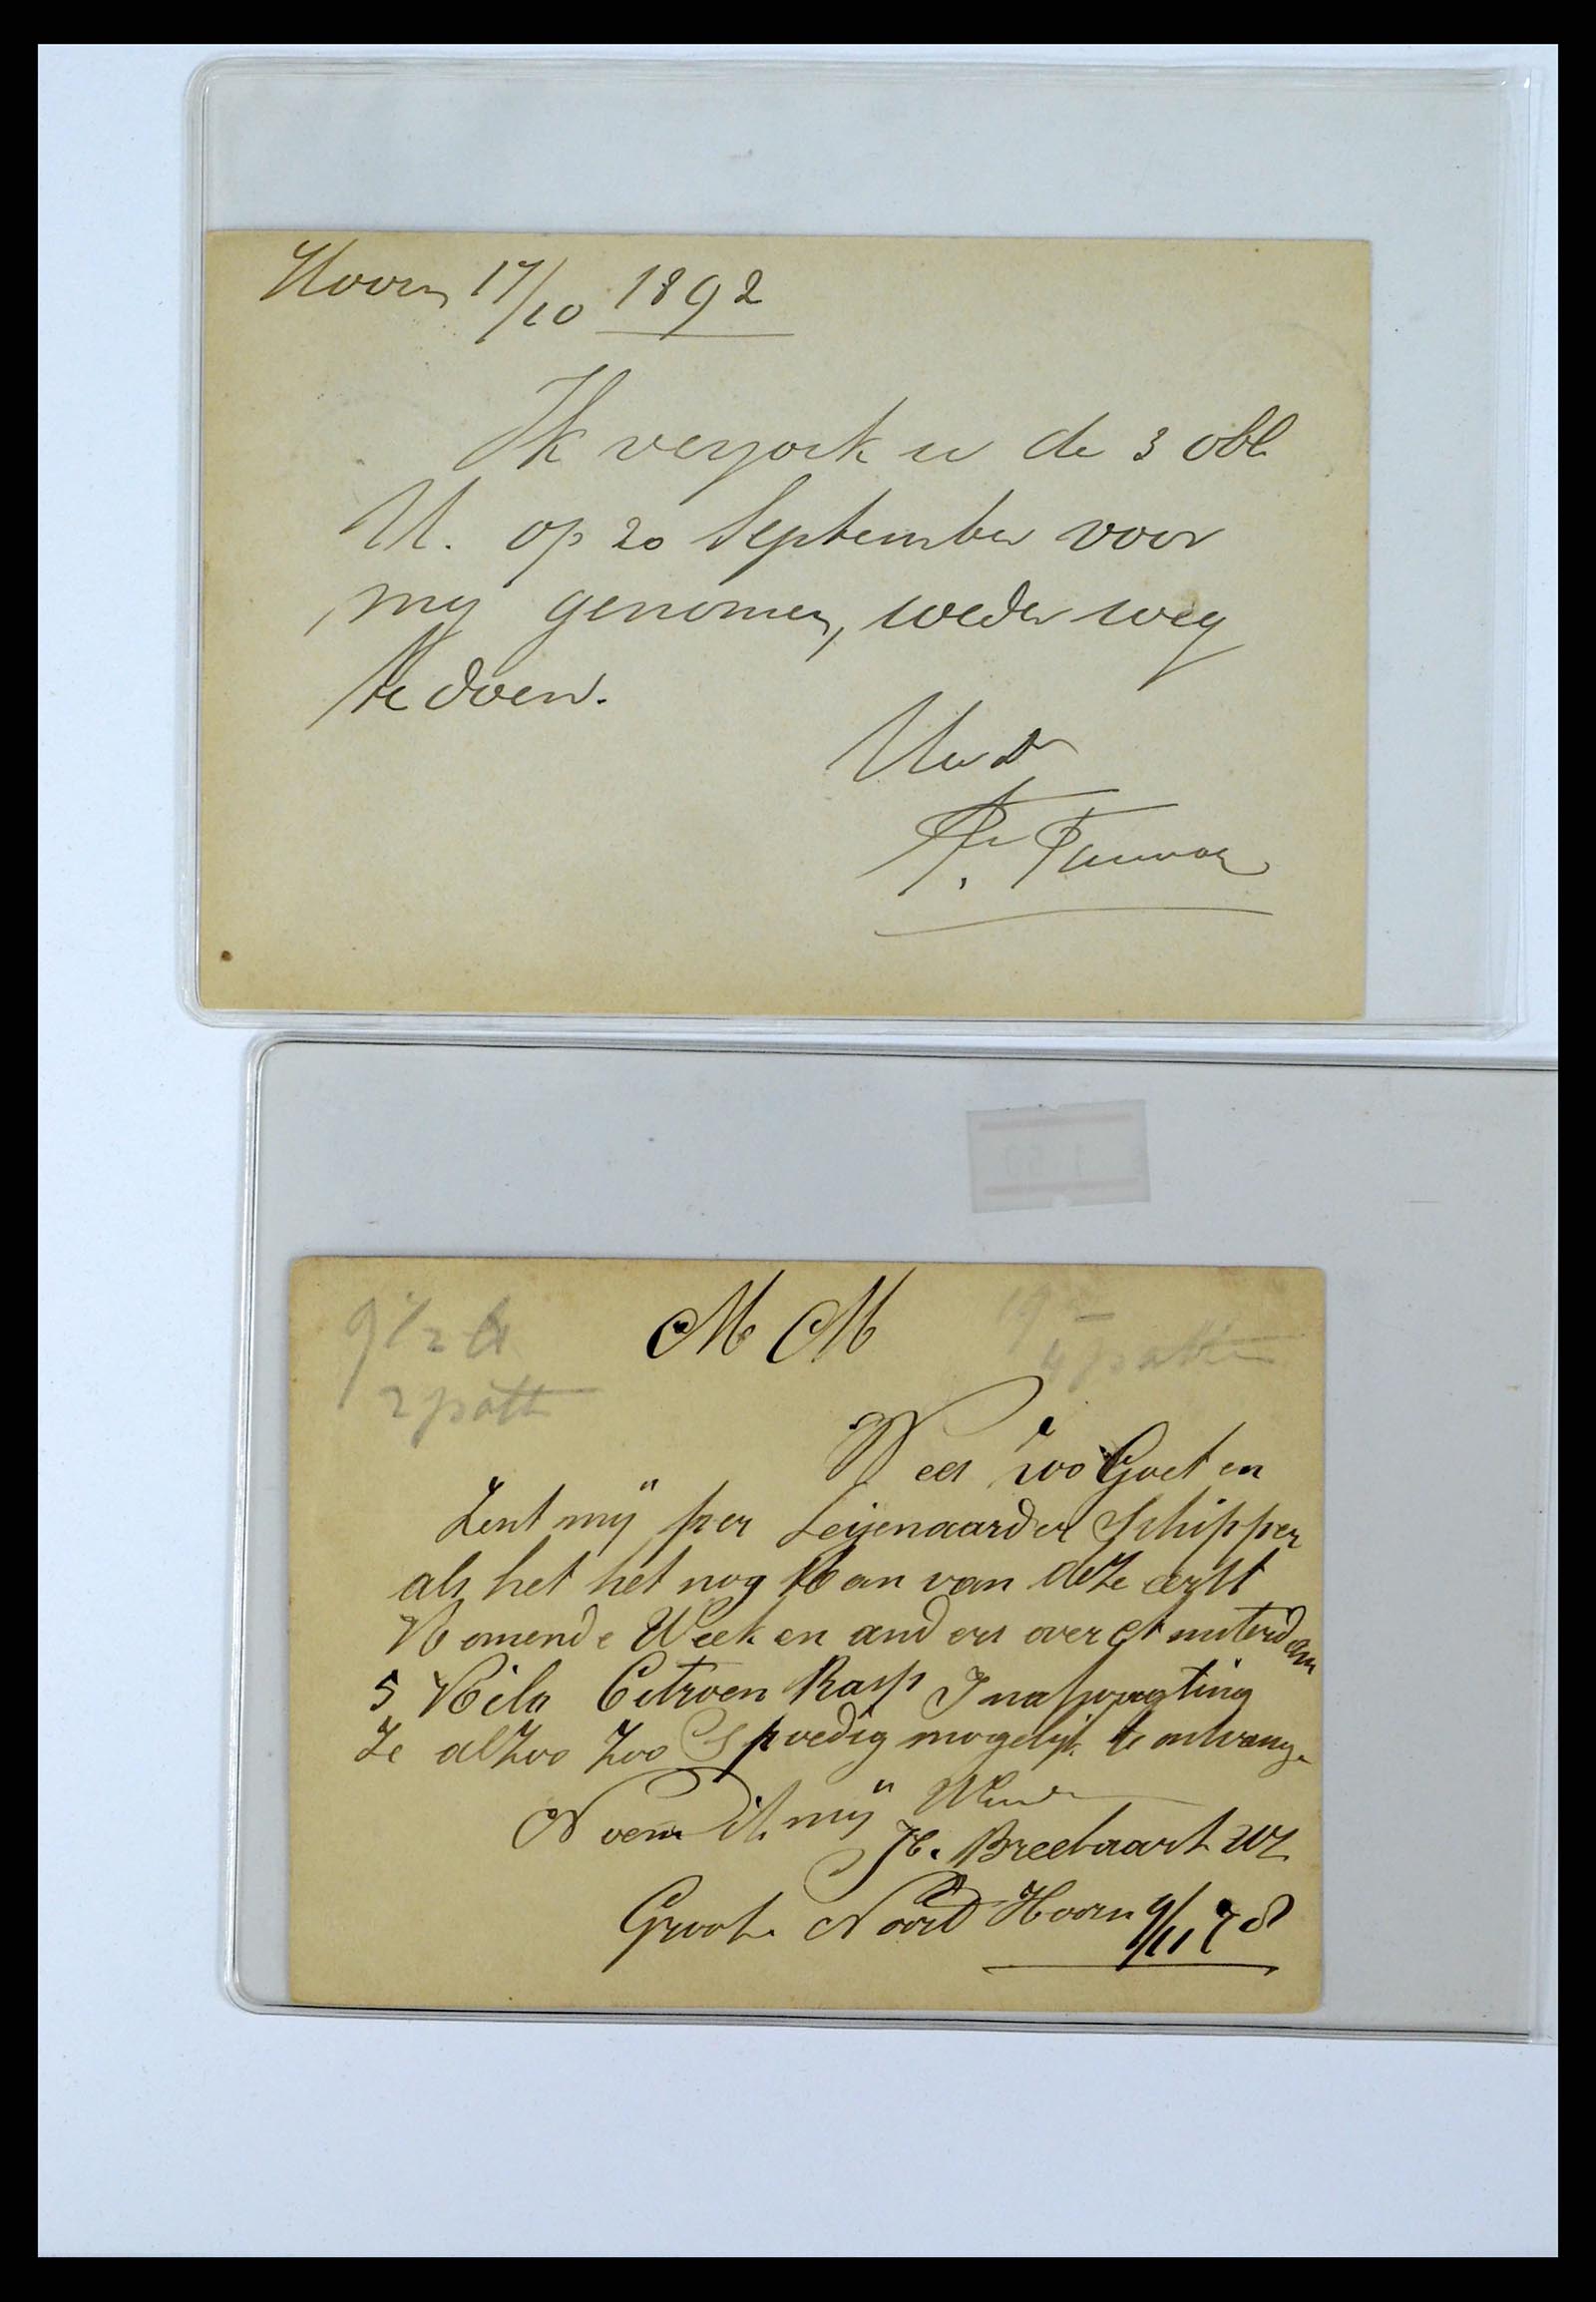 Hoorn 17/10 1892
Ik verzoek u de 3 obl
N. op 20 September voor
mij genomen, weder weg
te doen.
Uw Dr
M M
9 1/2
2 patt
4 patt
Wees zoo Goet en
Zent mij per Leijenaarder Schipper
als het het nog Kan van deze eerst
Komende Week en anders over Amsterdam
5 Kilo Citroen Rasp In afwagting
Ze alzoo Zoo Spoedig mogelijk te ontvang
Noem ik mij UwDr
K. Breebaart Wz
Groote Noord Hoorn 9/11 78